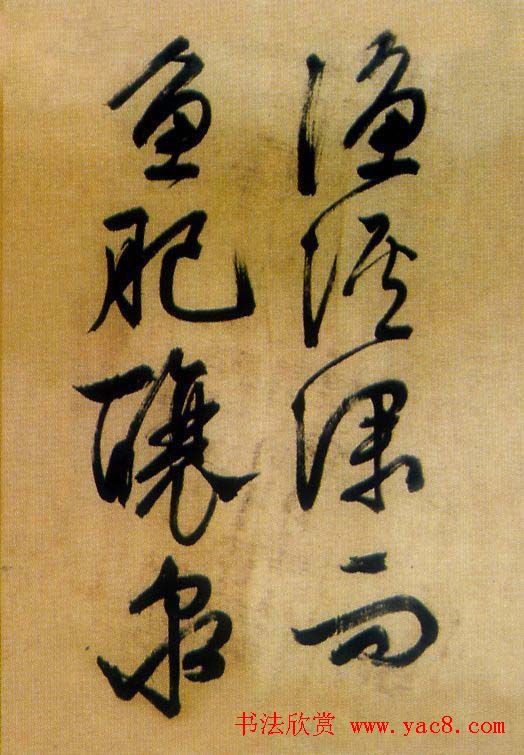 漁溪深而
魚肥釀泉
书法欣赏 www.yac8.com